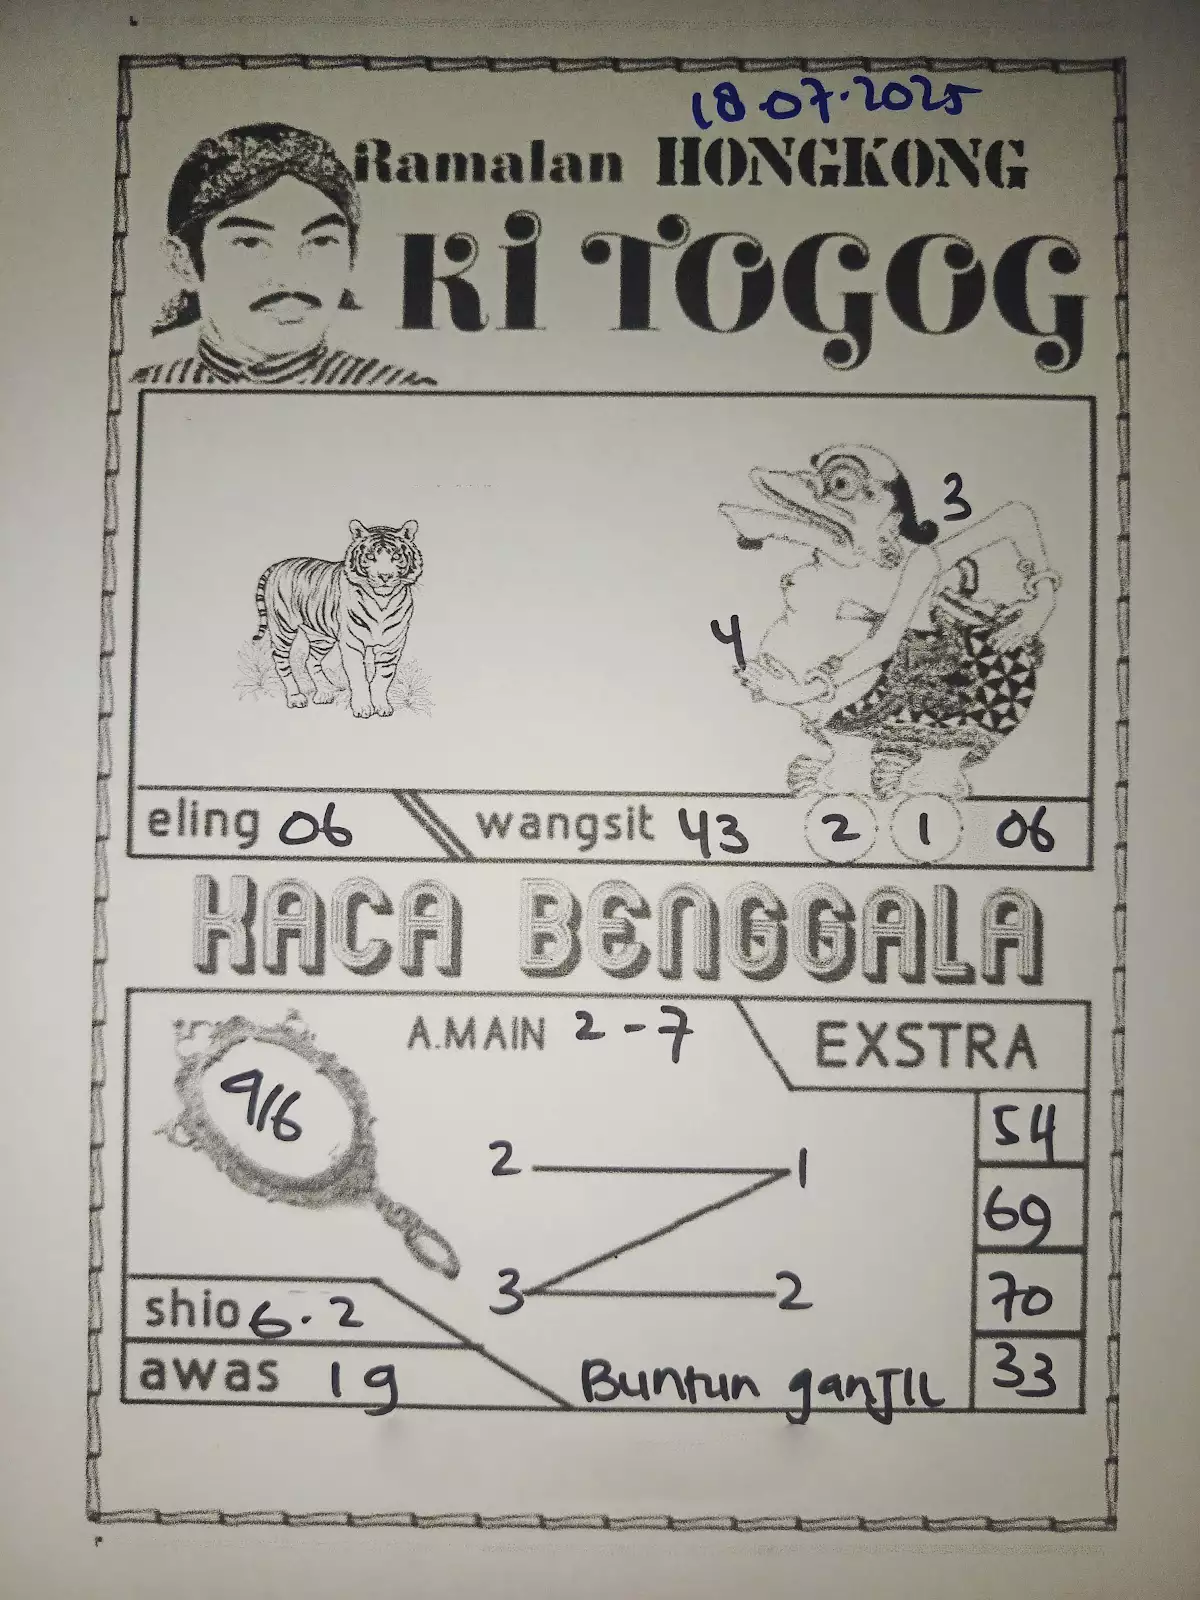 18.07.2025
Ramalan HONGKONG
KI TOGOG
3
4
eling 06 wangsit 43 2 1 06
KACA BENGGALA
A.MAIN 2-7 EXSTRA
9/6
54
2 1
69
3 2
70
shio 6.2
33
awas 19
Buntun ganJIL